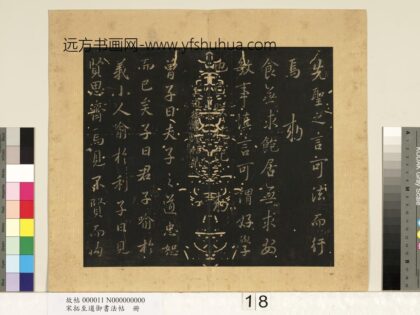 远方书画网-www.yfshuhua.com
先聖之言可法而行
焉 勑
食無求飽居無求安
敏事慎言可謂好學
也
曾子曰夫子之道忠恕
而已矣子曰君子喻於
義小人喻於利子曰見
賢思齊焉見不賢而內
故帖 000011 N000000000
宋拓至道御書法帖 冊
18